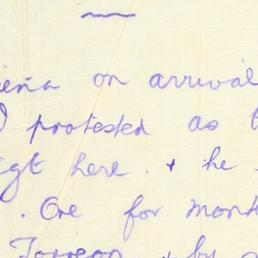 on arrival
protested as
here. + he
. Ore for mont
Torreon + by